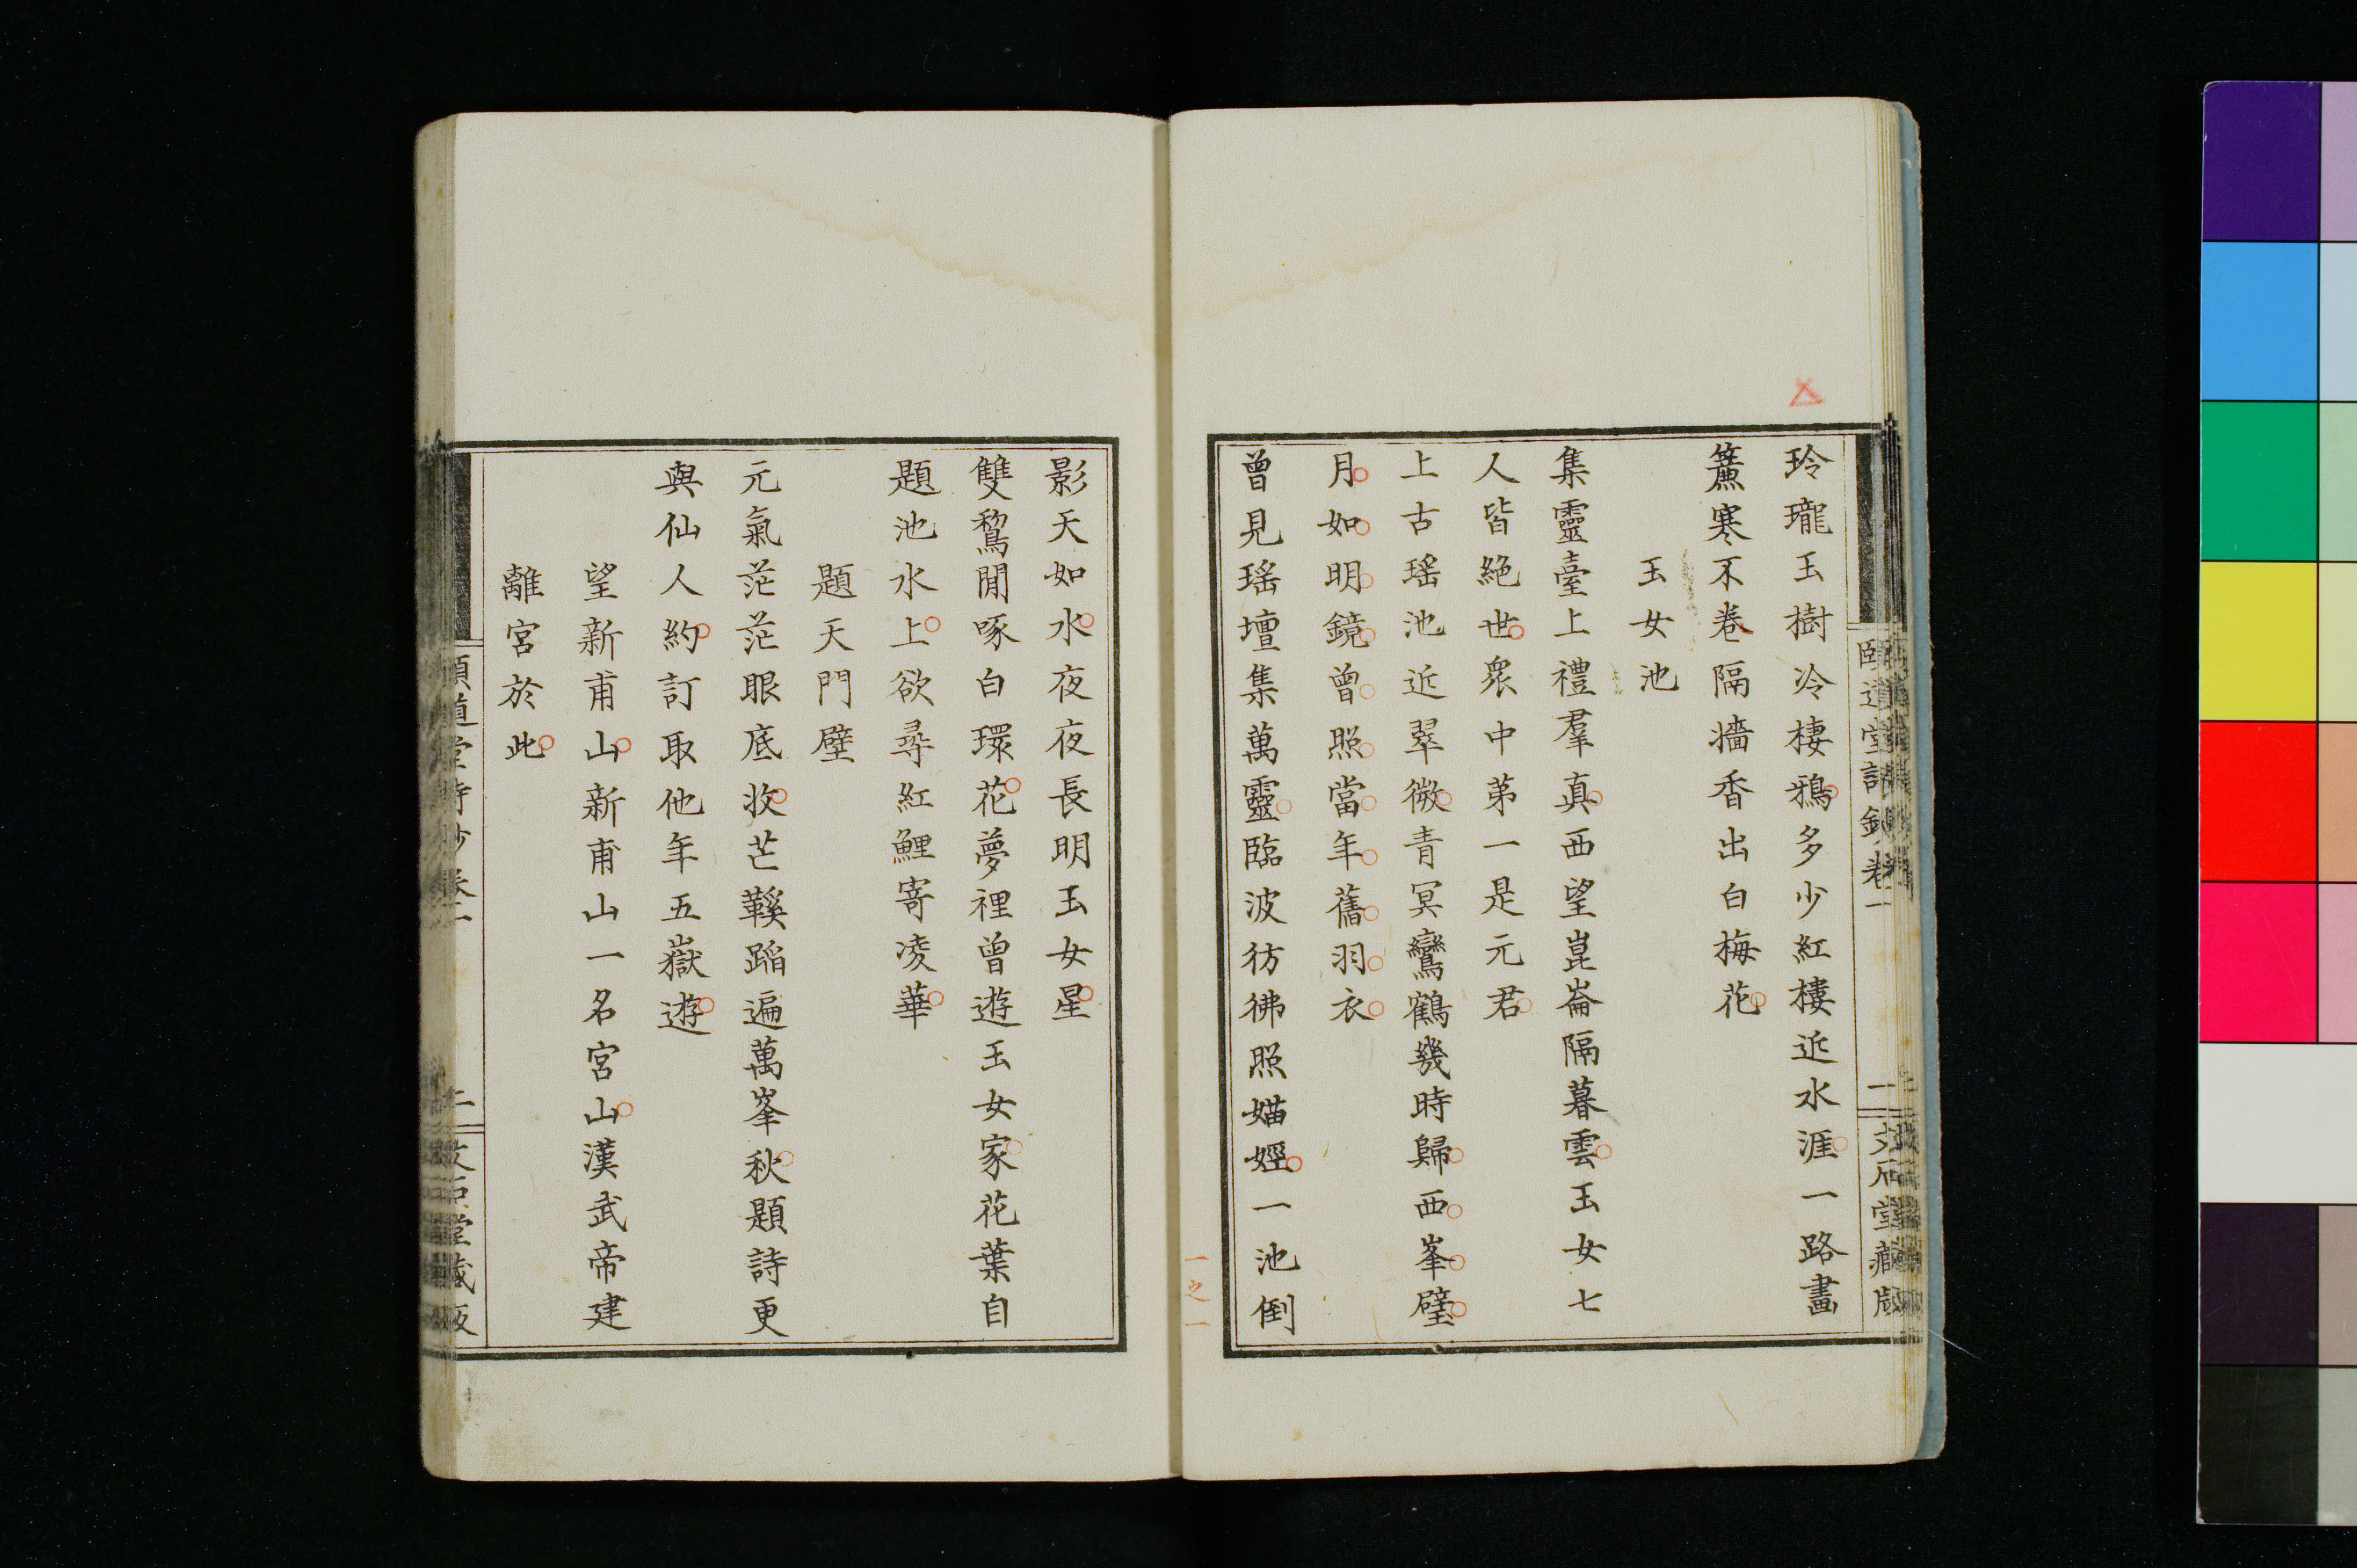 玲瓏玉樹冷棲鴉多少紅樓近水涯一路畫
簾寒不卷隔牆香出白梅花
玉女池
集靈臺上禮羣真西望崑崙隔暮雲玉女七
人皆絕世眾中第一是元君
上古瑤池近翠微青冥鸞鶴幾時歸西峯璧
月如明鏡曾照當年舊羽衣
曾見瑤壇集萬靈臨波彷彿照媌娙一池倒
影天如水夜夜長明玉女星
雙鵞閒啄白環花夢裡曾遊玉女家花葉自
題池水上欲尋紅鯉寄凌華
題天門壁
元氣茫茫眼底收芒鞵蹈遍萬峯秋題詩更
與仙人約訂取他年五嶽遊
望新甫山新甫山一名宮山漢武帝建
離宮於此
頤道堂詩鈔卷一
一
文石堂藏版
頤道堂詩鈔卷一
二
文石堂藏版
一之一